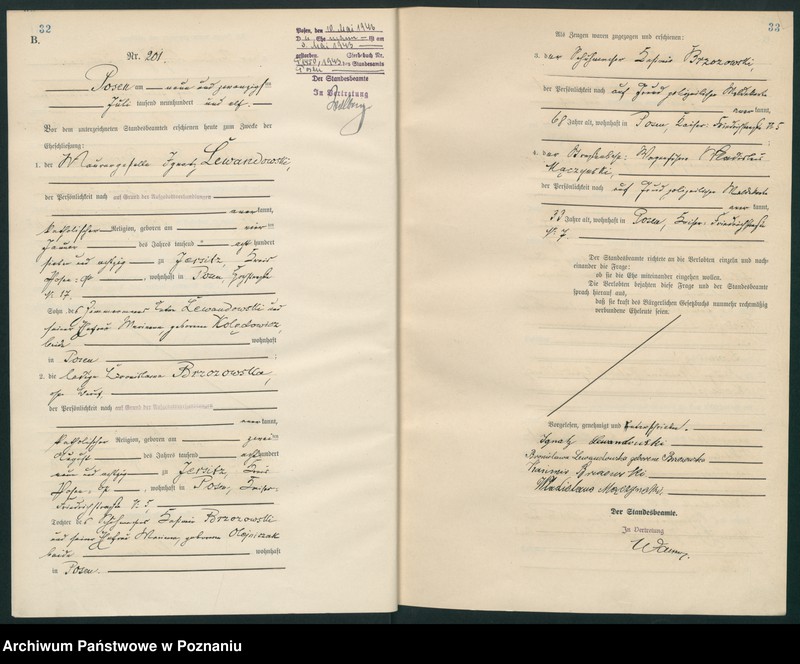 32
B.
Nr. 201.
Posen am neun und zwanzigsten
Juli tausend neunhundert und elf.
Vor dem unterzeichneten Standesbeamten erschienen heute zum Zwecke der
Eheschließung:
1. der Maurergeselle Ignatz Lewandowski,
der Persönlichkeit nach auf Grund der Aufgebotsverhandlungen
kannt,
katholischer Religion, geboren am vier
Januar des Jahres tausend acht hundert
sieben und achtzig zu Jersitz, Kreis
Posen-Ost, wohnhaft in Posen,
Nr. 17.
Sohn des Zimmermanns Peter Lewandowski und
seiner Ehefrau Marianna geborenen Kolendowicz,
beide wohnhaft
in Posen
2. die ledige Bronislawa Brzozowska,
ohne Beruf,
der Persönlichkeit nach auf Grund der Aufgebotsverhandlungen
kannt,
katholischer Religion, geboren am zweiten
August des Jahres tausend acht hundert
neun und achtzig zu Jersitz, Kreis
Posen-Ost, wohnhaft in Posen, Kaiser-
Friedrichstraße Nr. 5,
Tochter des Schuhmachers Kasimir Brzozowski
und seiner Ehefrau Marianna, geborenen Olejniczak
beide wohnhaft
in Posen.
Posen, den 10. Mai 1943
D Ehe ist am
3. Mai 1943
gestorben. Sterbebuch Nr.
1943 des Standesamts
Posen
Der Standesbeamte
In Vertretung
33
Als Zeugen waren zugezogen und erschienen:
3. der Schuhmacher Kasimir Brzozowski,
der Persönlichkeit nach auf Grund polizeilicher Meldekarte
kannt,
68 Jahre alt, wohnhaft in Posen, Kaiser-Friedrichstraße Nr. 5
4. der Straßenbahn-Wagenführer Wladislaus
Mączyński,
der Persönlichkeit nach auf Grund polizeilicher Meldekarte
kannt,
33 Jahre alt, wohnhaft in Posen, Kaiser-Friedrichstraße
Nr. 7.
Der Standesbeamte richtete an die Verlobten einzeln und nach-
einander die Frage:
ob sie die Ehe miteinander eingehen wollen.
Die Verlobten bejahten diese Frage und der Standesbeamte
sprach hierauf aus,
daß sie kraft des Bürgerlichen Gesetzbuchs nunmehr rechtmäßig
verbundene Eheleute seien.
Vorgelesen, genehmigt und unterschrieben.
Ignatz Lewandowski
Bronislawa Lewandowska geborene Brzozowska
Kasimir Brzozowski
Wladislaus Mączyński
Der Standesbeamte.
In Vertretung
Archiwum Państwowe w Poznaniu